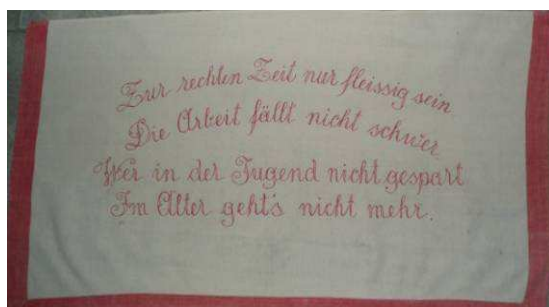 Zur rechten Zeit nur fleissig sein
Die Arbeit fällt nicht schwer
Wer in der Jugend nicht gespart
Im Alter geht's nicht mehr.